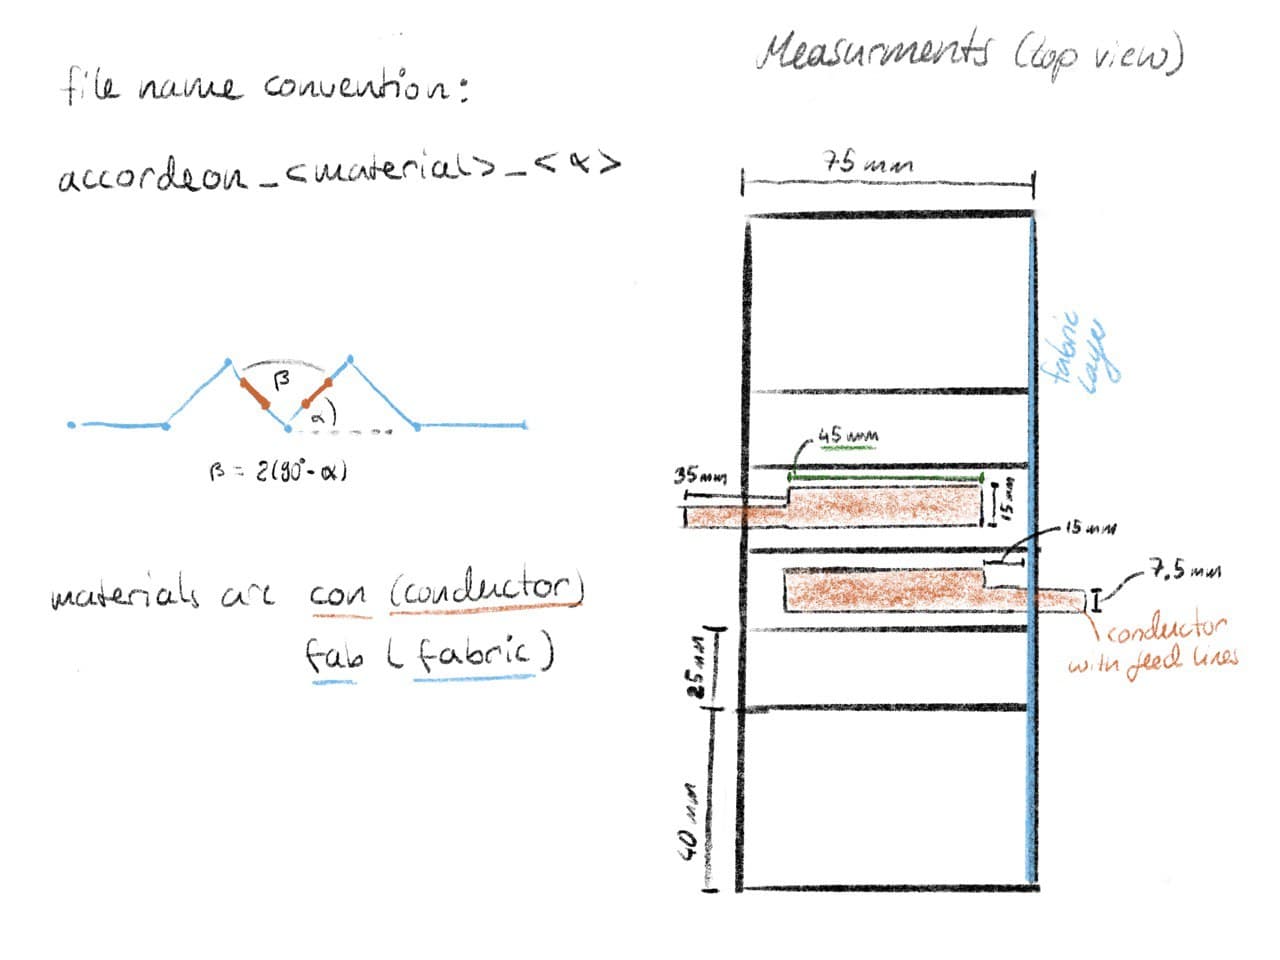 file name convention:
accordeon_<material>_<α>
β
α)
β = 2(90°-α)
materials are con (conductor)
fab (fabric)
Measurments (top view)
75 mm
fabric
layer
45 mm
35 mm
15 mm
15 mm
7.5 mm
conductor
with feed lines
25 mm
40 mm